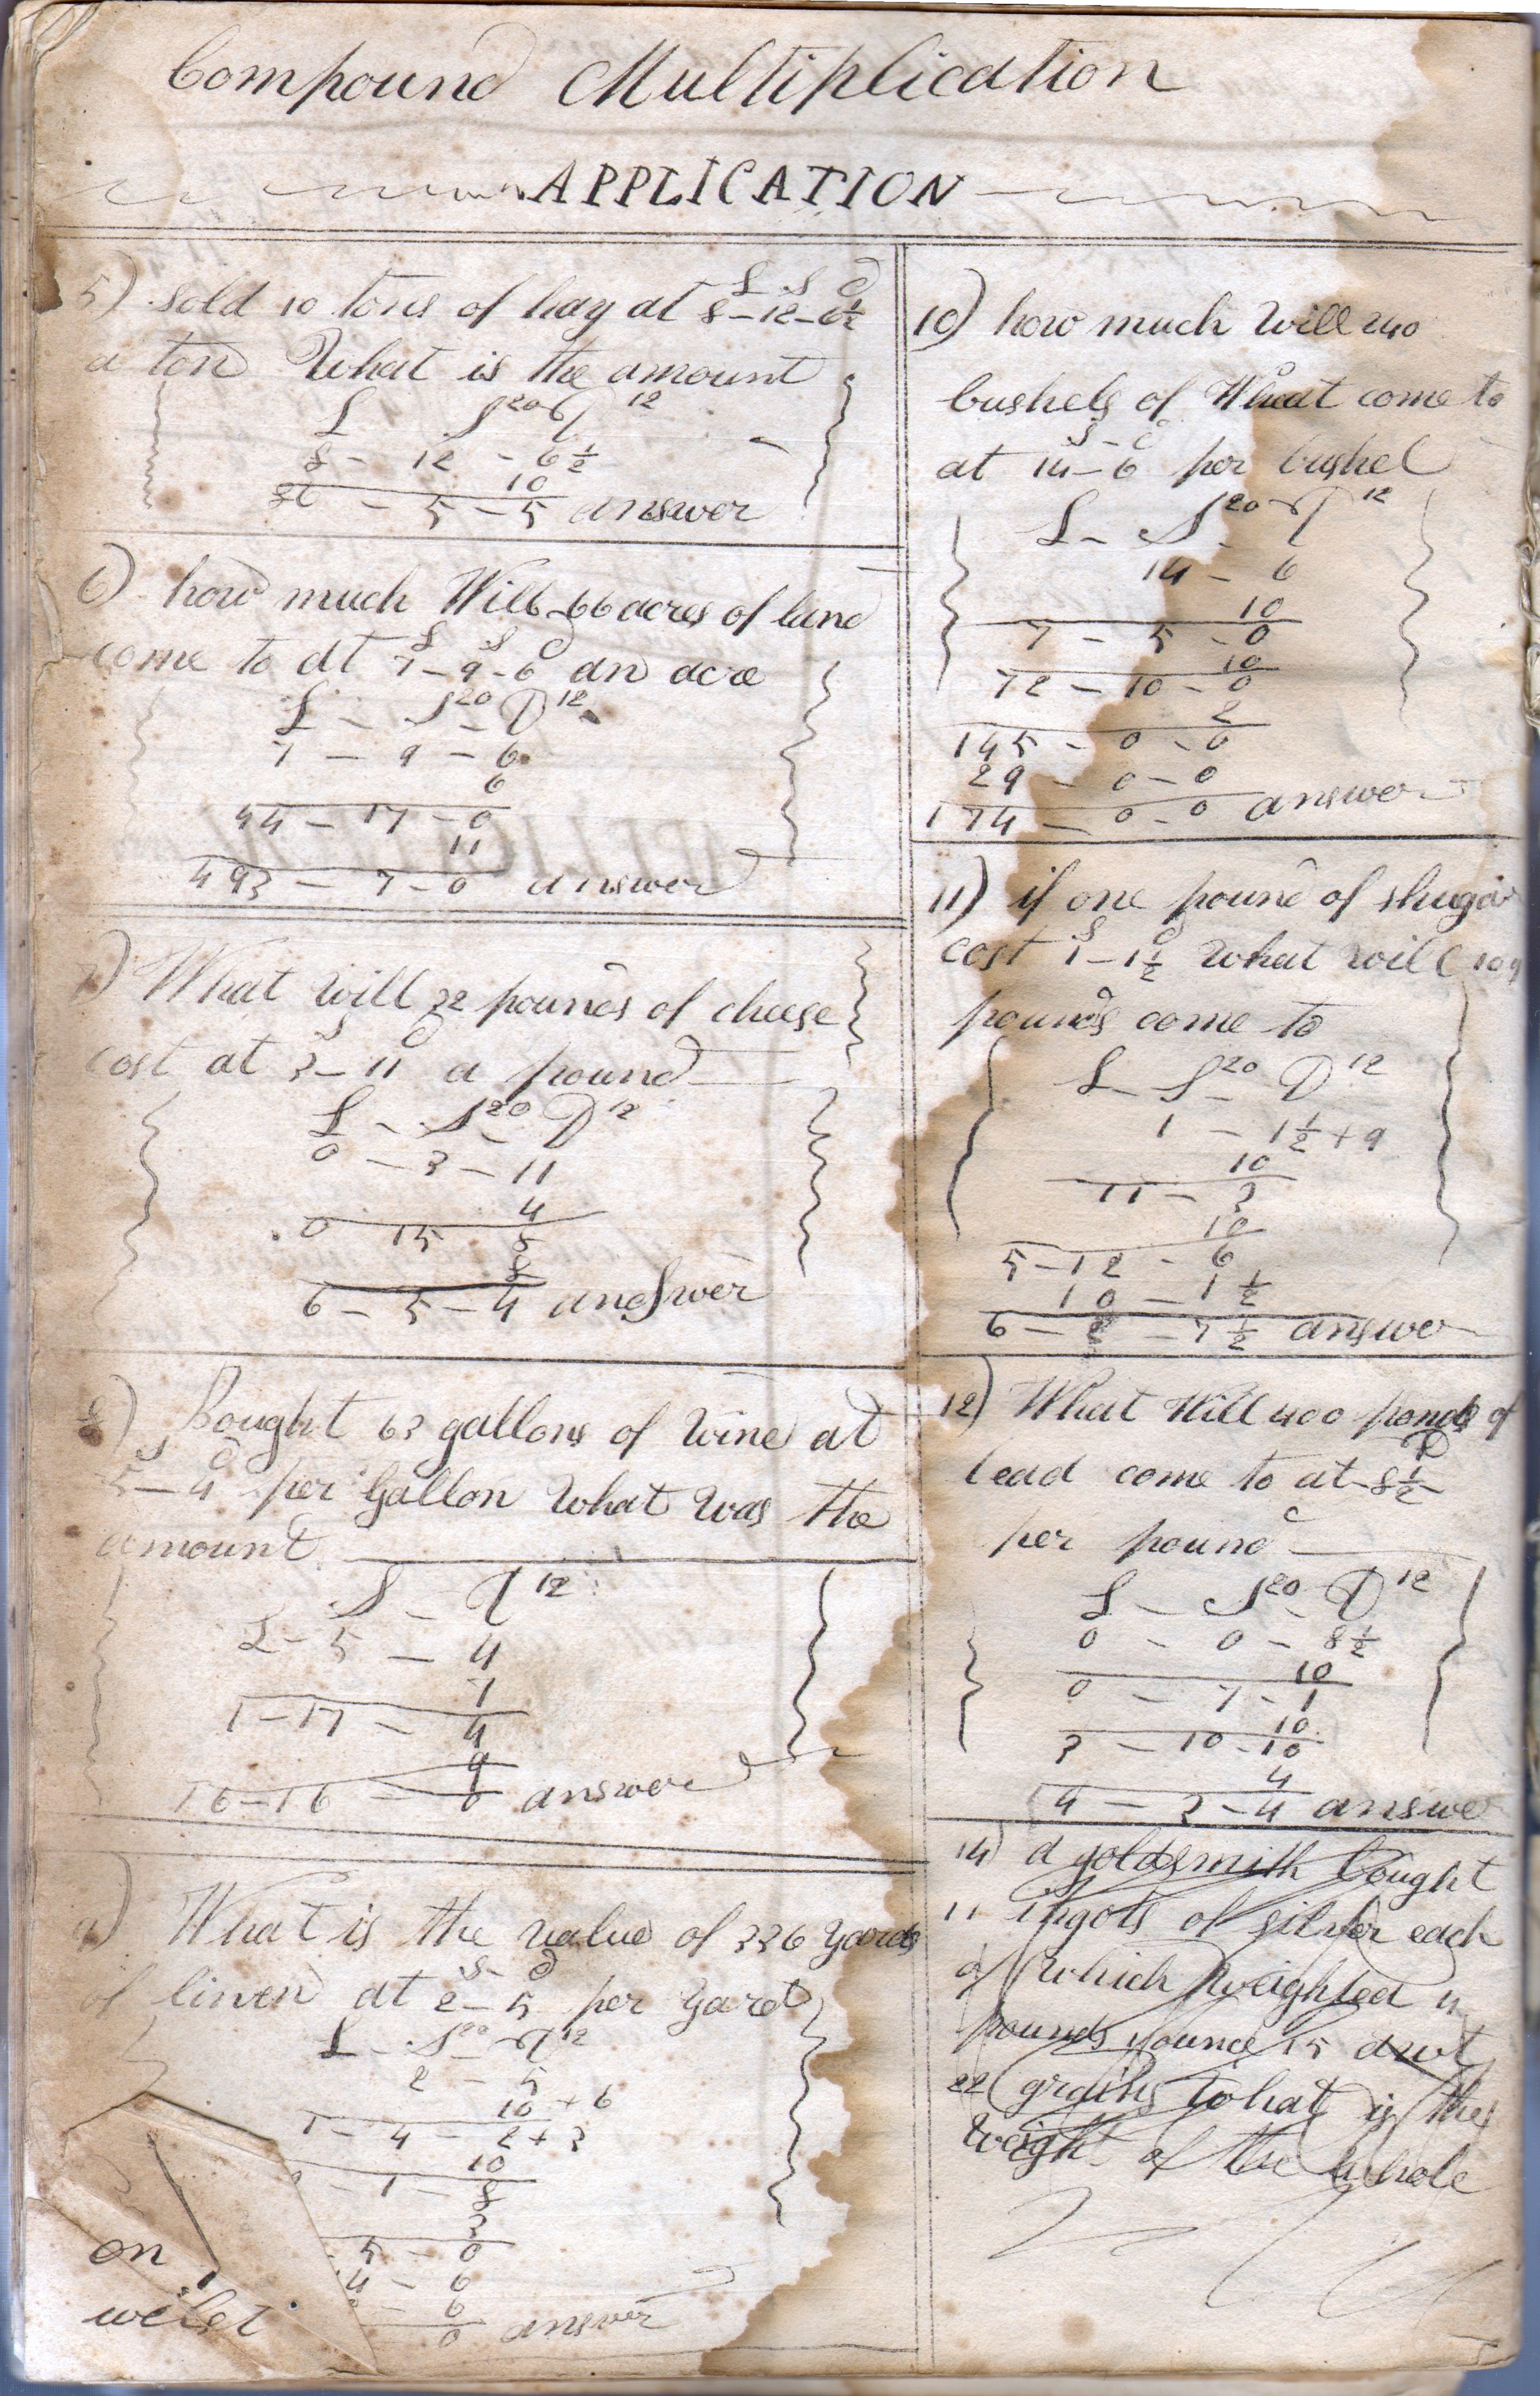 Compound Multiplication
APPLICATION
5) sold 10 tons of hay at £ S D 8-12-6½
a ton What is the amount
£ S20 D 12
8 - 12 - 6½
10
86 - 5 - 5 answer
6) how much Will 66 acres of land
come to at £ S D 7-9-6 an acre
£ - S20 - D12
7 - 9 - 6
6
44 - 17 - 0
11
493 - 7 - 0 answer
7) What will 32 pounds of cheese
cost at S D 3-11 a pound
£ - S20 - D12
0 - 3 - 11
4
0 15 8
8
6 - 5 - 4 answer
8) Bought 63 gallons of wine at
S D 5-4 per Gallon what was the
amount
S - D 12
£ - 5 - 4
7
1 - 17 - 4
9
16 - 16 - 0 answer
9) What is the value of 336 yards
of linen at S D 2-5 per yard
£ - S20 - D12
2 - 5
10 + 6
1 - 4 - 2 + 3
10
- 1 - 8
3
5 - 0
4 - 6
- 6
0 answer
on
10) how much will 240
bushels of Wheat come to
at S - D 14-6 per bushel
£ - S20 - D12
14 - 6
10
7 - 5 - 0
10
72 - 10 - 0
2
145 - 0 - 0
29 - 0 - 0
174 - 0 - 0 answer
11) if one pound of shugar
cost S D 1-1½ what will 109
pounds come to
£ - S20 - D12
1 - 1½ + 9
10
11 - 3
10
5 - 12 - 6
10 - 1½
6 - 2 - 7½ answer
12) What Will 400 ponds of
lead come to at D 8½
per pound
£ - S20 - D12
0 - 0 - 8½
10
0 - 7 - 1
10
3 - 10 - 10
4
14 - 3 - 4 answe
14) a goldsmith bought
11 ingots of silver each
of which weighted 4
pounds 1 ounce 15 dwt
22 grains what is the
weight of the whole